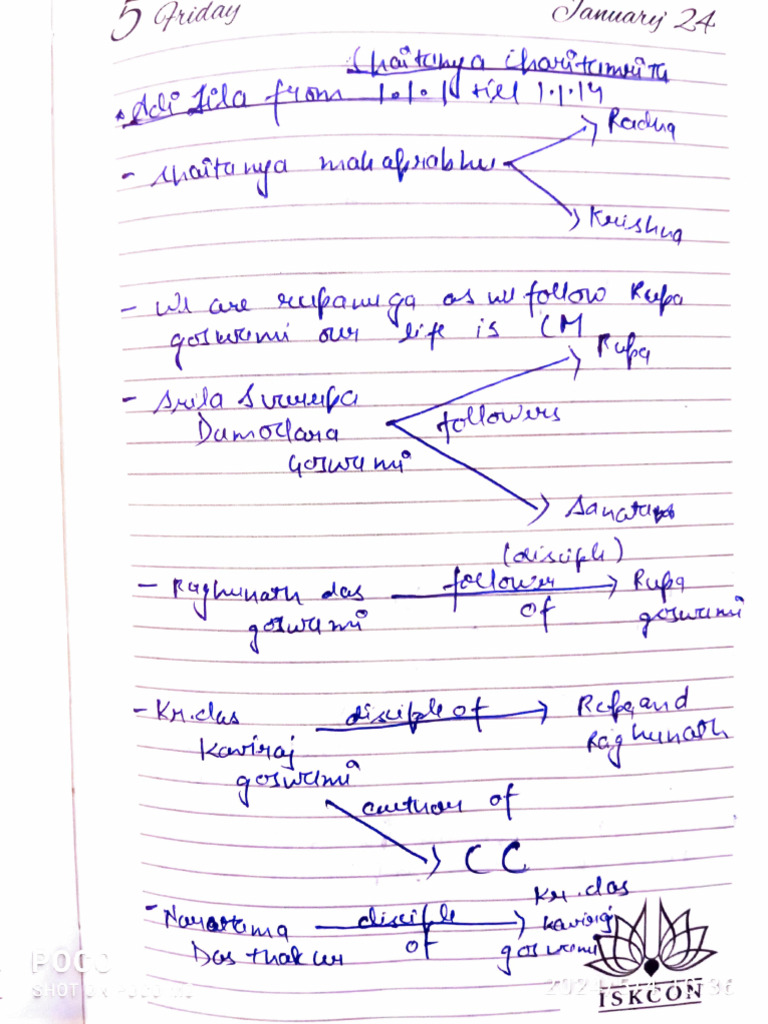 5 Friday January 24
Chaitanya Charitamrita
Adi Lila from 1.1.1 till 1.1.14
- Chaitanya mahaprabhu
Radha
Krishna
- We are rupanuga as we follow Rupa
goswami our life is CM
- Srila Swarupa
Damodara
Goswami
followers
Rupa
Sanatan
(disciple)
- Raghunath das follower Rupa
goswami of goswami
- Kr. das disciple of Rupa and
Kaviraj Raghunath
goswami
author of
CC
- Narottama disciple Kr. das
Das thakur of kaviraj
goswami
POCO
SHOT ON
ISKCON